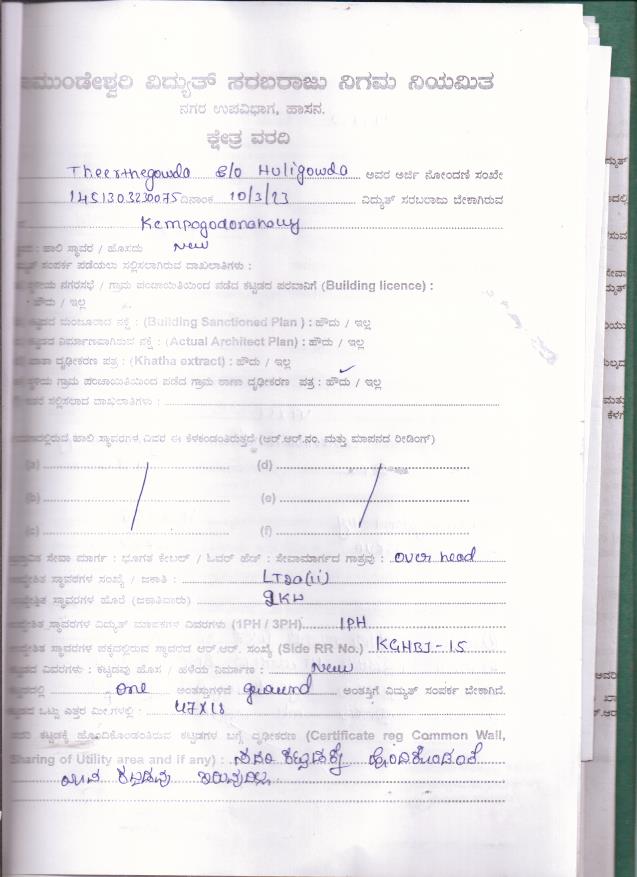 ಮುಂಡೇಶ್ವರಿ ವಿದ್ಯುತ್ ಸರಬರಾಜು ನಿಗಮ ನಿಯಮಿತ
ನಗರ ಉಪವಿಭಾಗ, ಹಾಸನ.
ಕ್ಷೇತ್ರ ವರದಿ
Theerthegowda S/o Huligowda ಅವರ ಅರ್ಜಿ ನೋಂದಣಿ ಸಂಖೇ
1451303230075 ದಿನಾಂಕ 10/3/23 ವಿದ್ಯುತ್ ಸರಬರಾಜು ಬೇಕಾಗಿರುವ
: ಹಾಲಿ ಸ್ಥಾವರ / ಹೊಸದು New
ಸಂಪರ್ಕ ಪಡೆಯಲು ಸಲ್ಲಿಸಲಾಗಿರುವ ದಾಖಲಾತಿಗಳು :
ನಗರಸಭೆ / ಗ್ರಾಮ ಪಂಚಾಯಿತಿಯಿಂದ ಪಡೆದ ಕಟ್ಟಡದ ಪರವಾನಿಗೆ (Building licence) :
ಹೌದು / ಇಲ್ಲ
ಕಟ್ಟಡದ ಮಂಜೂರಾದ ನಕ್ಷೆ : (Building Sanctioned Plan) : ಹೌದು / ಇಲ್ಲ
ಕಟ್ಟಡದ ನಿರ್ಮಾಣವಾಗಿರುವ ನಕ್ಷೆ : (Actual Architect Plan) : ಹೌದು / ಇಲ್ಲ
ಖಾತಾ ದೃಢೀಕರಣ ಪತ್ರ : (Khatha extract) : ಹೌದು / ಇಲ್ಲ
ಸ್ಥಳೀಯ ಗ್ರಾಮ ಪಂಚಾಯಿತಿಯಿಂದ ಪಡೆದ ಗ್ರಾಮ ಠಾಣಾ ದೃಢೀಕರಣ ಪತ್ರ : ಹೌದು / ಇಲ್ಲ
ಇತರ ಸಲ್ಲಿಸಲಾದ ದಾಖಲಾತಿಗಳು :
ಹಾಲಿ ಸ್ಥಾವರಗಳ ವಿವರ ಈ ಕೆಳಕಂಡಂತಿರುತ್ತದೆ (ಆರ್.ಆರ್.ನಂ. ಮತ್ತು ಮಾಪನದ ರೀಡಿಂಗ್)
(a) (d)
(b) (e)
(c) (f)
ಸೇವಾ ಮಾರ್ಗ : ಭೂಗತ ಕೇಬಲ್ / ಓವರ್ ಹೆಡ್ : ಸೇವಾಮಾರ್ಗದ ಗಾತ್ರವು : over head
ಸ್ಥಾವರಗಳ ಸಂಖ್ಯೆ / ಜಕಾತಿ :
ಸ್ಥಾವರಗಳ ಹೊರೆ (ಜಕಾತಿವಾರು)
ಸ್ಥಾವರಗಳ ವಿದ್ಯುತ್ ಮಾಪಕಗಳ ವಿವರಗಳು (1PH / 3PH) 1PH
ಸ್ಥಾವರಗಳ ಪಕ್ಕದಲ್ಲಿರುವ ಸ್ಥಾವರದ ಆರ್.ಆರ್. ಸಂಖ್ಯೆ (Side RR No.)
ಕಟ್ಟಡದ ವಿವರಗಳು : ಕಟ್ಟಡವು ಹೊಸ / ಹಳೆಯ ನಿರ್ಮಾಣ : New
ಕಟ್ಟಡದಲ್ಲಿ one ಅಂತಸ್ತುಗಳಿವೆ ground ಅಂತಸ್ತಿಗೆ ವಿದ್ಯುತ್ ಸಂಪರ್ಕ ಬೇಕಾಗಿದೆ.
ಕಟ್ಟಡದ ಒಟ್ಟು ಎತ್ತರ ಮೀ.ಗಳಲ್ಲಿ : 47X18
ಕಟ್ಟಡಕ್ಕೆ ಹೊಂದಿಕೊಂಡಂತಿರುವ ಕಟ್ಟಡಗಳ ಬಗ್ಗೆ ದೃಢೀಕರಣ (Certificate reg Common Wall,
Sharing of Utility area and if any) : ಸದರಿ ಕಟ್ಟಡಕ್ಕೆ ಹೊಂದಿಕೊಂಡಂತೆ
ಯಾವ ಕಟ್ಟಡವು ಇರುವುದಿಲ್ಲ